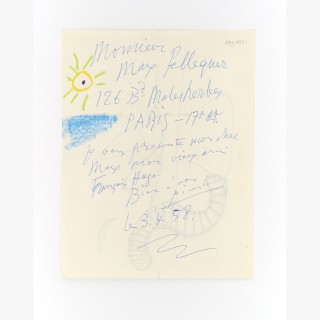 Monsieur
Max Pellequer
126 Bd Malesherbes
PARIS – 17e
je vous présente mon cher
Max mon vieux ami
François Hugo.
Bien à
le 3.4.58.